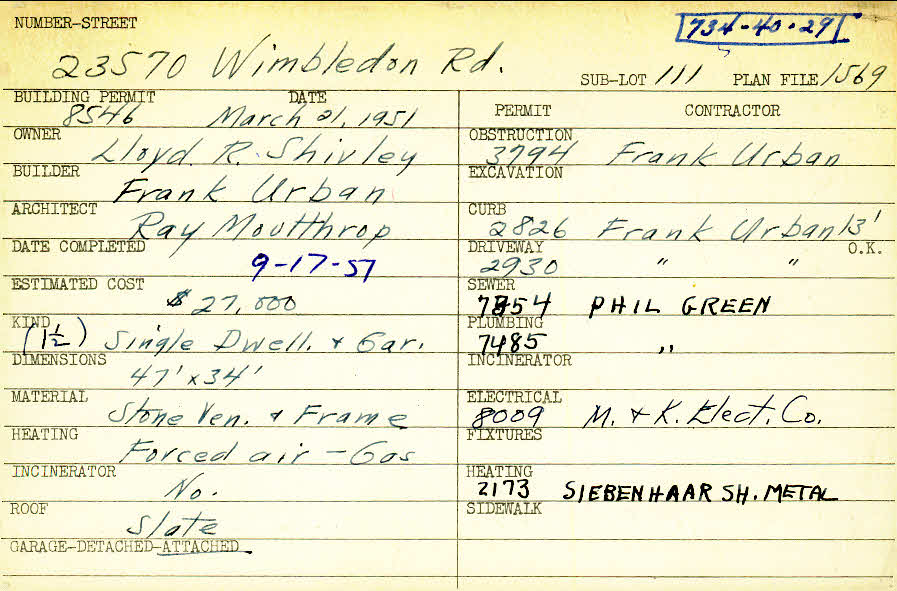 NUMBER-STREET
734-40-29
23570 Wimbledon Rd.
SUB-LOT 111 PLAN FILE 1569
BUILDING PERMIT DATE
8546 March 21, 1951
OWNER
Lloyd. R. Shivley
BUILDER
Frank Urban
ARCHITECT
Ray Moutthrop
DATE COMPLETED
9-17-51
ESTIMATED COST
$27,000
KIND
(1½) Single Dwell. & Gar.
DIMENSIONS
47' x 34'
MATERIAL
Stone Ven. & Frame
HEATING
Forced air - Gas
INCINERATOR
No.
ROOF
Slate
GARAGE-DETACHED-ATTACHED
PERMIT CONTRACTOR
OBSTRUCTION
3794 Frank Urban
EXCAVATION
CURB
2826 Frank Urban 13'
DRIVEWAY O.K.
2930 " "
SEWER
7854 PHIL GREEN
PLUMBING
7485 "
INCINERATOR
ELECTRICAL
8009 M. & K. Elect. Co.
FIXTURES
HEATING
2173 SIEBENHAAR SH. METAL
SIDEWALK